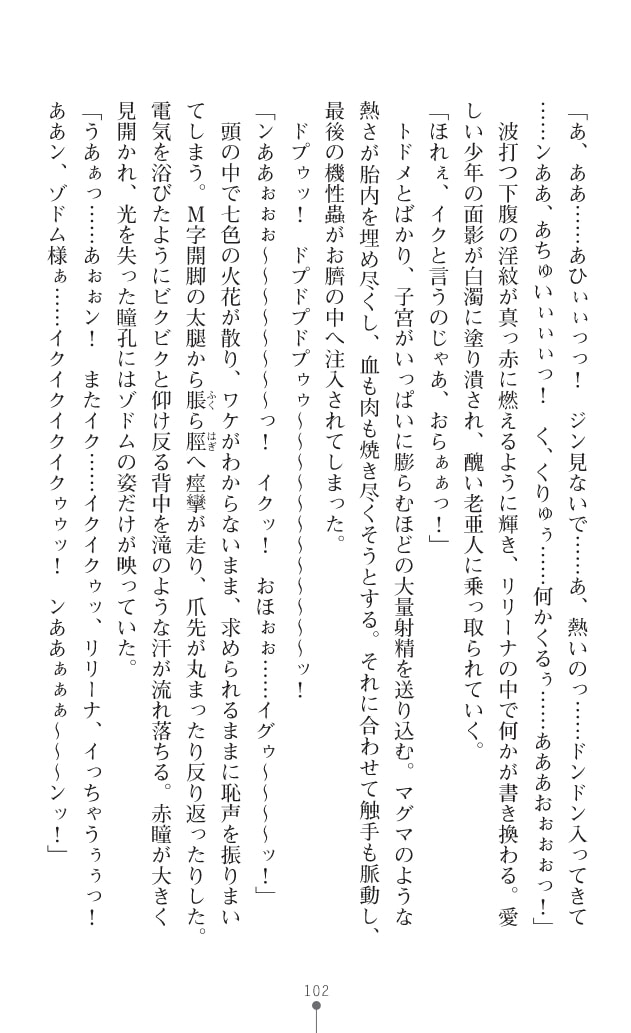 「あ、ああ……あひぃぃっっ！　ジン見ないで……あ、熱いのっ……ドンドン入ってきて
……ンああ、あちゅいぃぃぃっ！　く、くりゅぅ……何かくるぅ……あああおぉぉぉっ！」
波打つ下腹の淫紋が真っ赤に燃えるように輝き、リリーナの中で何かが書き換わる。愛
しい少年の面影が白濁に塗り潰され、醜い老亜人に乗っ取られていく。
「ほれぇ、イクと言うのじゃあ、おらぁぁっ！」
トドメとばかり、子宮がいっぱいに膨らむほどの大量射精を送り込む。マグマのような
熱さが胎内を埋め尽くし、血も肉も焼き尽くそうとする。それに合わせて触手も脈動し、
最後の機性蟲がお臍の中へ注入されてしまった。
ドプゥッ！　ドプドプドプゥゥ〜〜〜〜〜〜〜〜〜〜ッ！
「ンああぉぉぉ〜〜〜〜〜〜〜っ！　イクッ！　おほぉぉ……イグゥ〜〜〜〜ッ！」
頭の中で七色の火花が散り、ワケがわからないまま、求められるままに恥声を振りまい
てしまう。Ｍ字開脚の太腿から脹ら脛へ痙攣が走り、爪先が丸まったり反り返ったりした。
電気を浴びたようにビクビクと仰け反る背中を滝のような汗が流れ落ちる。赤瞳が大きく
見開かれ、光を失った瞳孔にはゾドムの姿だけが映っていた。
「うあぁっ……あぉぉン！　またイク……イクイクゥッ、リリーナ、イっちゃうぅぅっ！
ああン、ゾドム様ぁ……イクイクイクイクゥゥッ！　ンああぁぁぁ〜〜〜ンッ！」
102